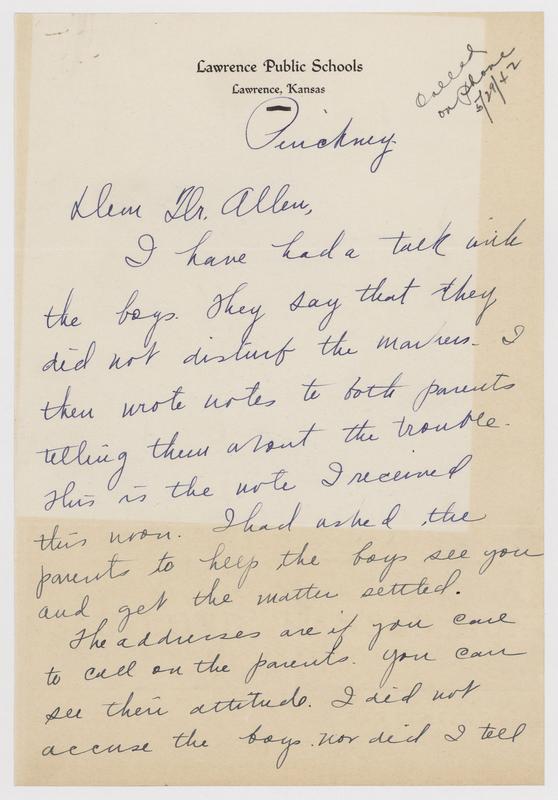 Lawrence Public Schools
Lawrence, Kansas
Called
on phone
5/29/42
Pinckney
Dear Dr. Allen,
I have had a talk with
the boys. They say that they
did not disturb the markers. I
then wrote notes to both parents
telling them about the trouble.
This is the note I received
this noon. I had asked the
parents to help the boys see you
and get the matter settled.
The addresses are if you care
to call on the parents. You can
see their attitude. I did not
accuse the boys nor did I tell